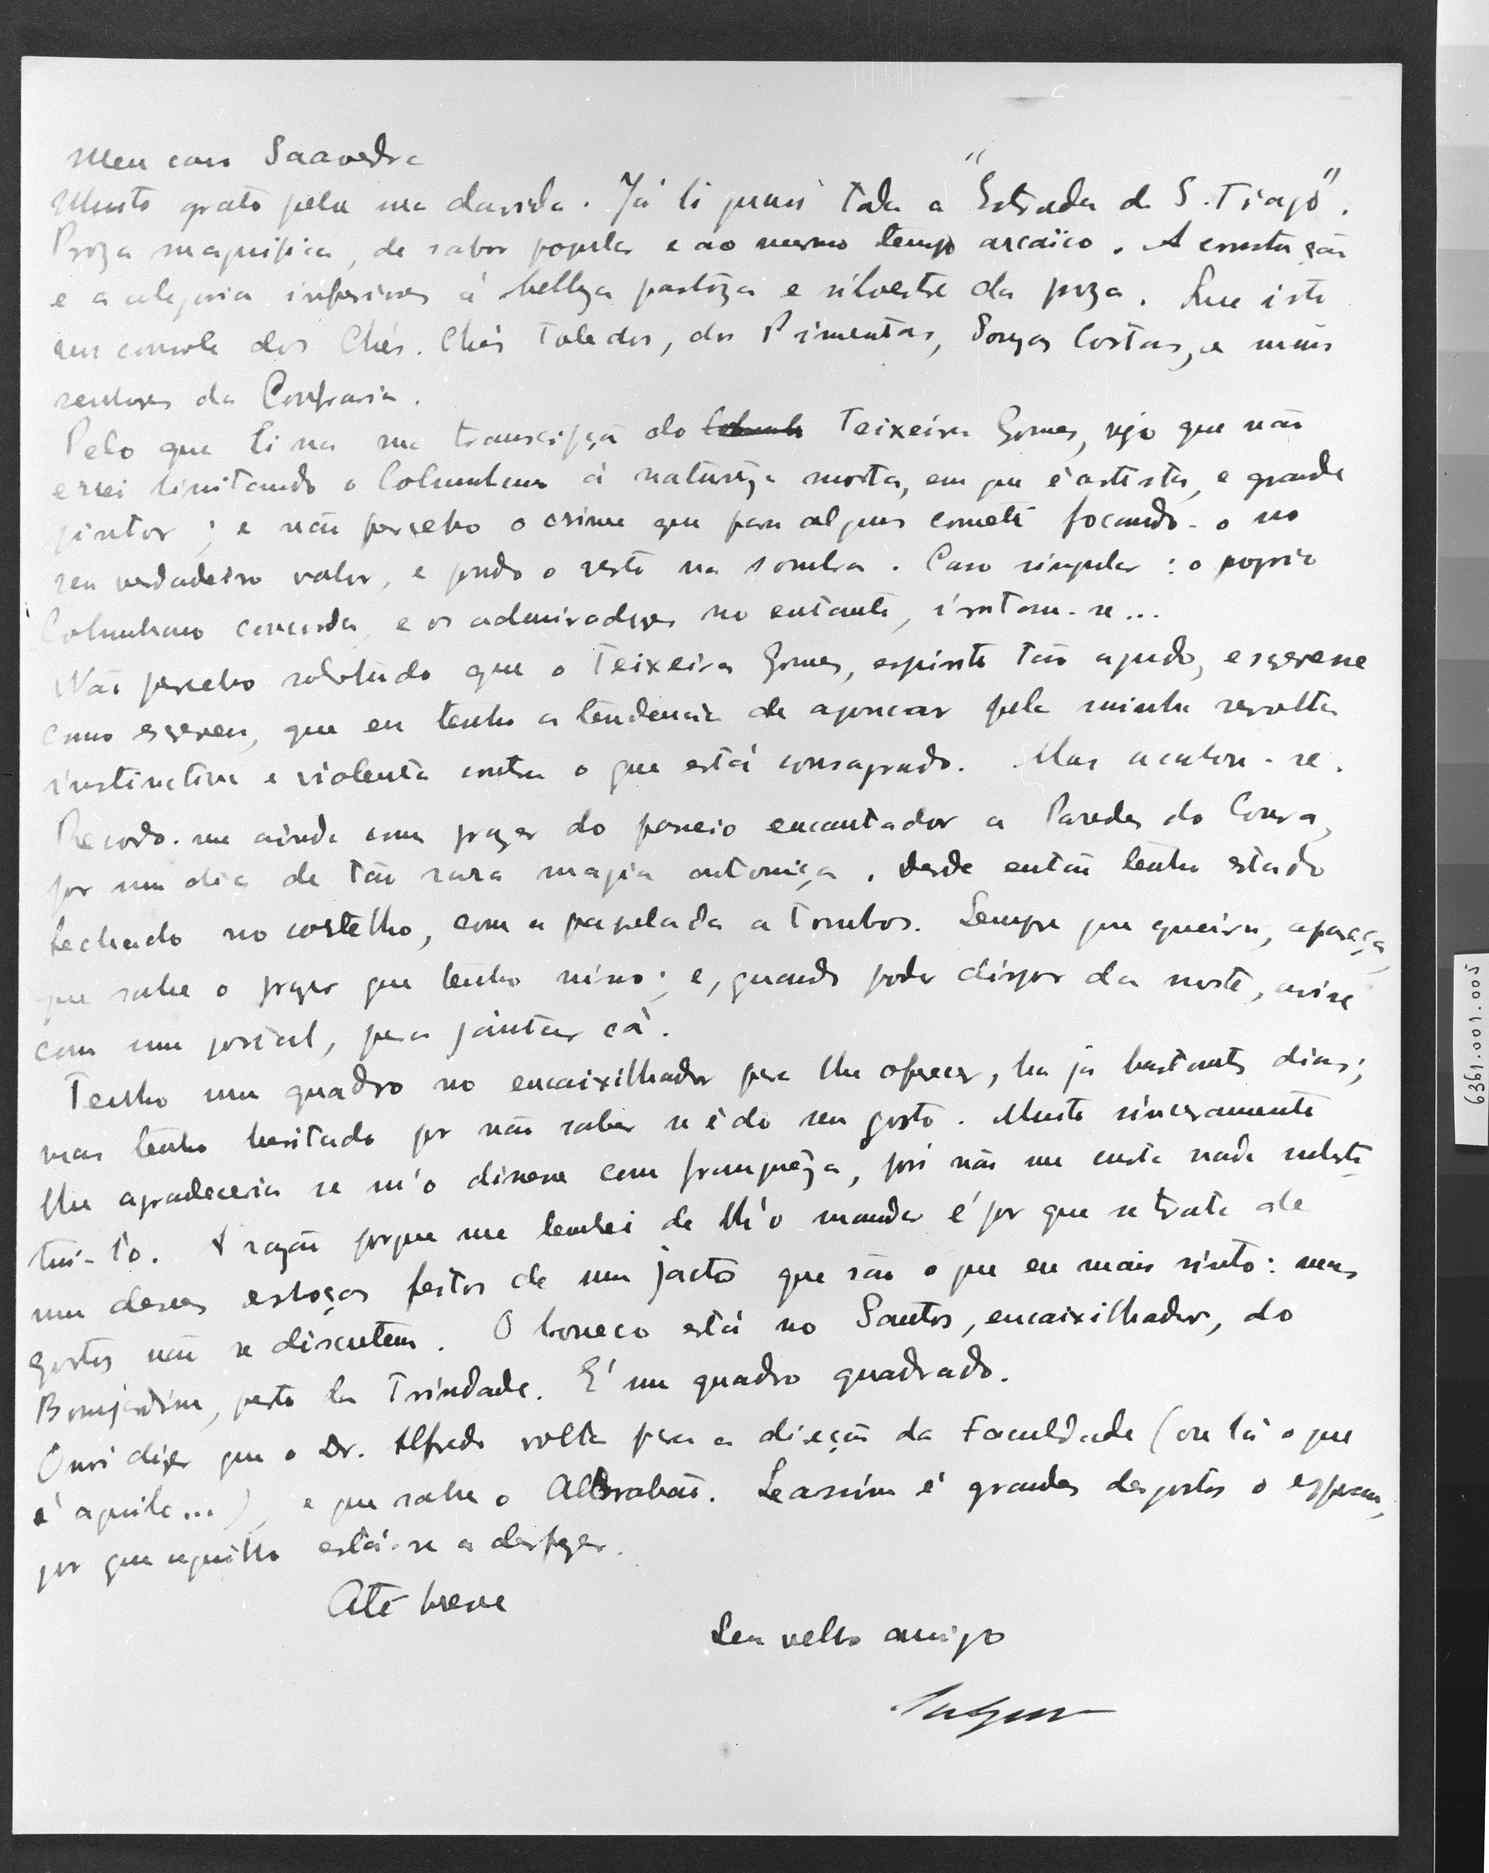 Meu caro Saavedra
Muito grato pela sua davida. Já li quasi toda a "Estrada de S. Tiago".
Proza magnifica, de sabor popular e ao mesmo tempo arcaïco. A construção
e a alegoria inferiores á belleza pastoza e silvestre da proza. Que isto
nos console dos Chés-Chés Toledos, dos Pimentas, Souzas Costas, e mais
senhores da Confraria.
Pelo que li na sua transcripção do Teixeira Gomes, vejo que não
errei limitando o Columbano á natureza morta, em que é artista, e grande
pintor; e não percebo o crime que para alguns cometi focando-o no
seu verdadeiro valor, e pondo o resto na sombra. Caso singular: o proprio
Columbano concorda, e os admiradores no entanto, irritam-se...
Não percebo sobretudo que o Teixeira Gomes, espirito tão agudo, escrevesse
como escreveu, que eu tenho a tendencia de apoucar pela minha revolta
instinctiva e violenta contra o que está consagrado. Mas acabou-se.
Recordo-me ainda com prazer do passeio encantador a Paredes do Coura,
por um dia de tão rara magia outoniça. Desde então tenho estado
fechado no cortelho, com a papelada a tombos. Sempre que queira, apareça,
que sabe o prazer que tenho nisso; e, quando poder dispor da noite, avise
com um postal, para jantar cá.
Tenho um quadro no encaixilhador para lhe oferecer, ha já bastantes dias;
mas tenho hesitado por não saber se é do seu gosto. Muito sinceramente
lhe agradeceria se m'o dissesse com franquêza, pois não me custa nada substi-
tui-l'o. A razão porque me lembrei de lh'o mandar é por que se trata de
um desses esboços feitos de um jacto que são o que eu mais sinto: mas
gostos não se discutem. O boneco está no Santos, encaixilhador, do
Bomjardim, perto da Trindade. É um quadro quadrado.
Ouvi dizer que o Dr. Alfredo volta para a direção da Faculdade (ou lá o que
é aquilo...), e que sahe o Abrahão. Se assim é grandes desgostos o esperam,
por que aquillo está-se a desfazer.
Até breve
Seu velho amigo
6361.001.005